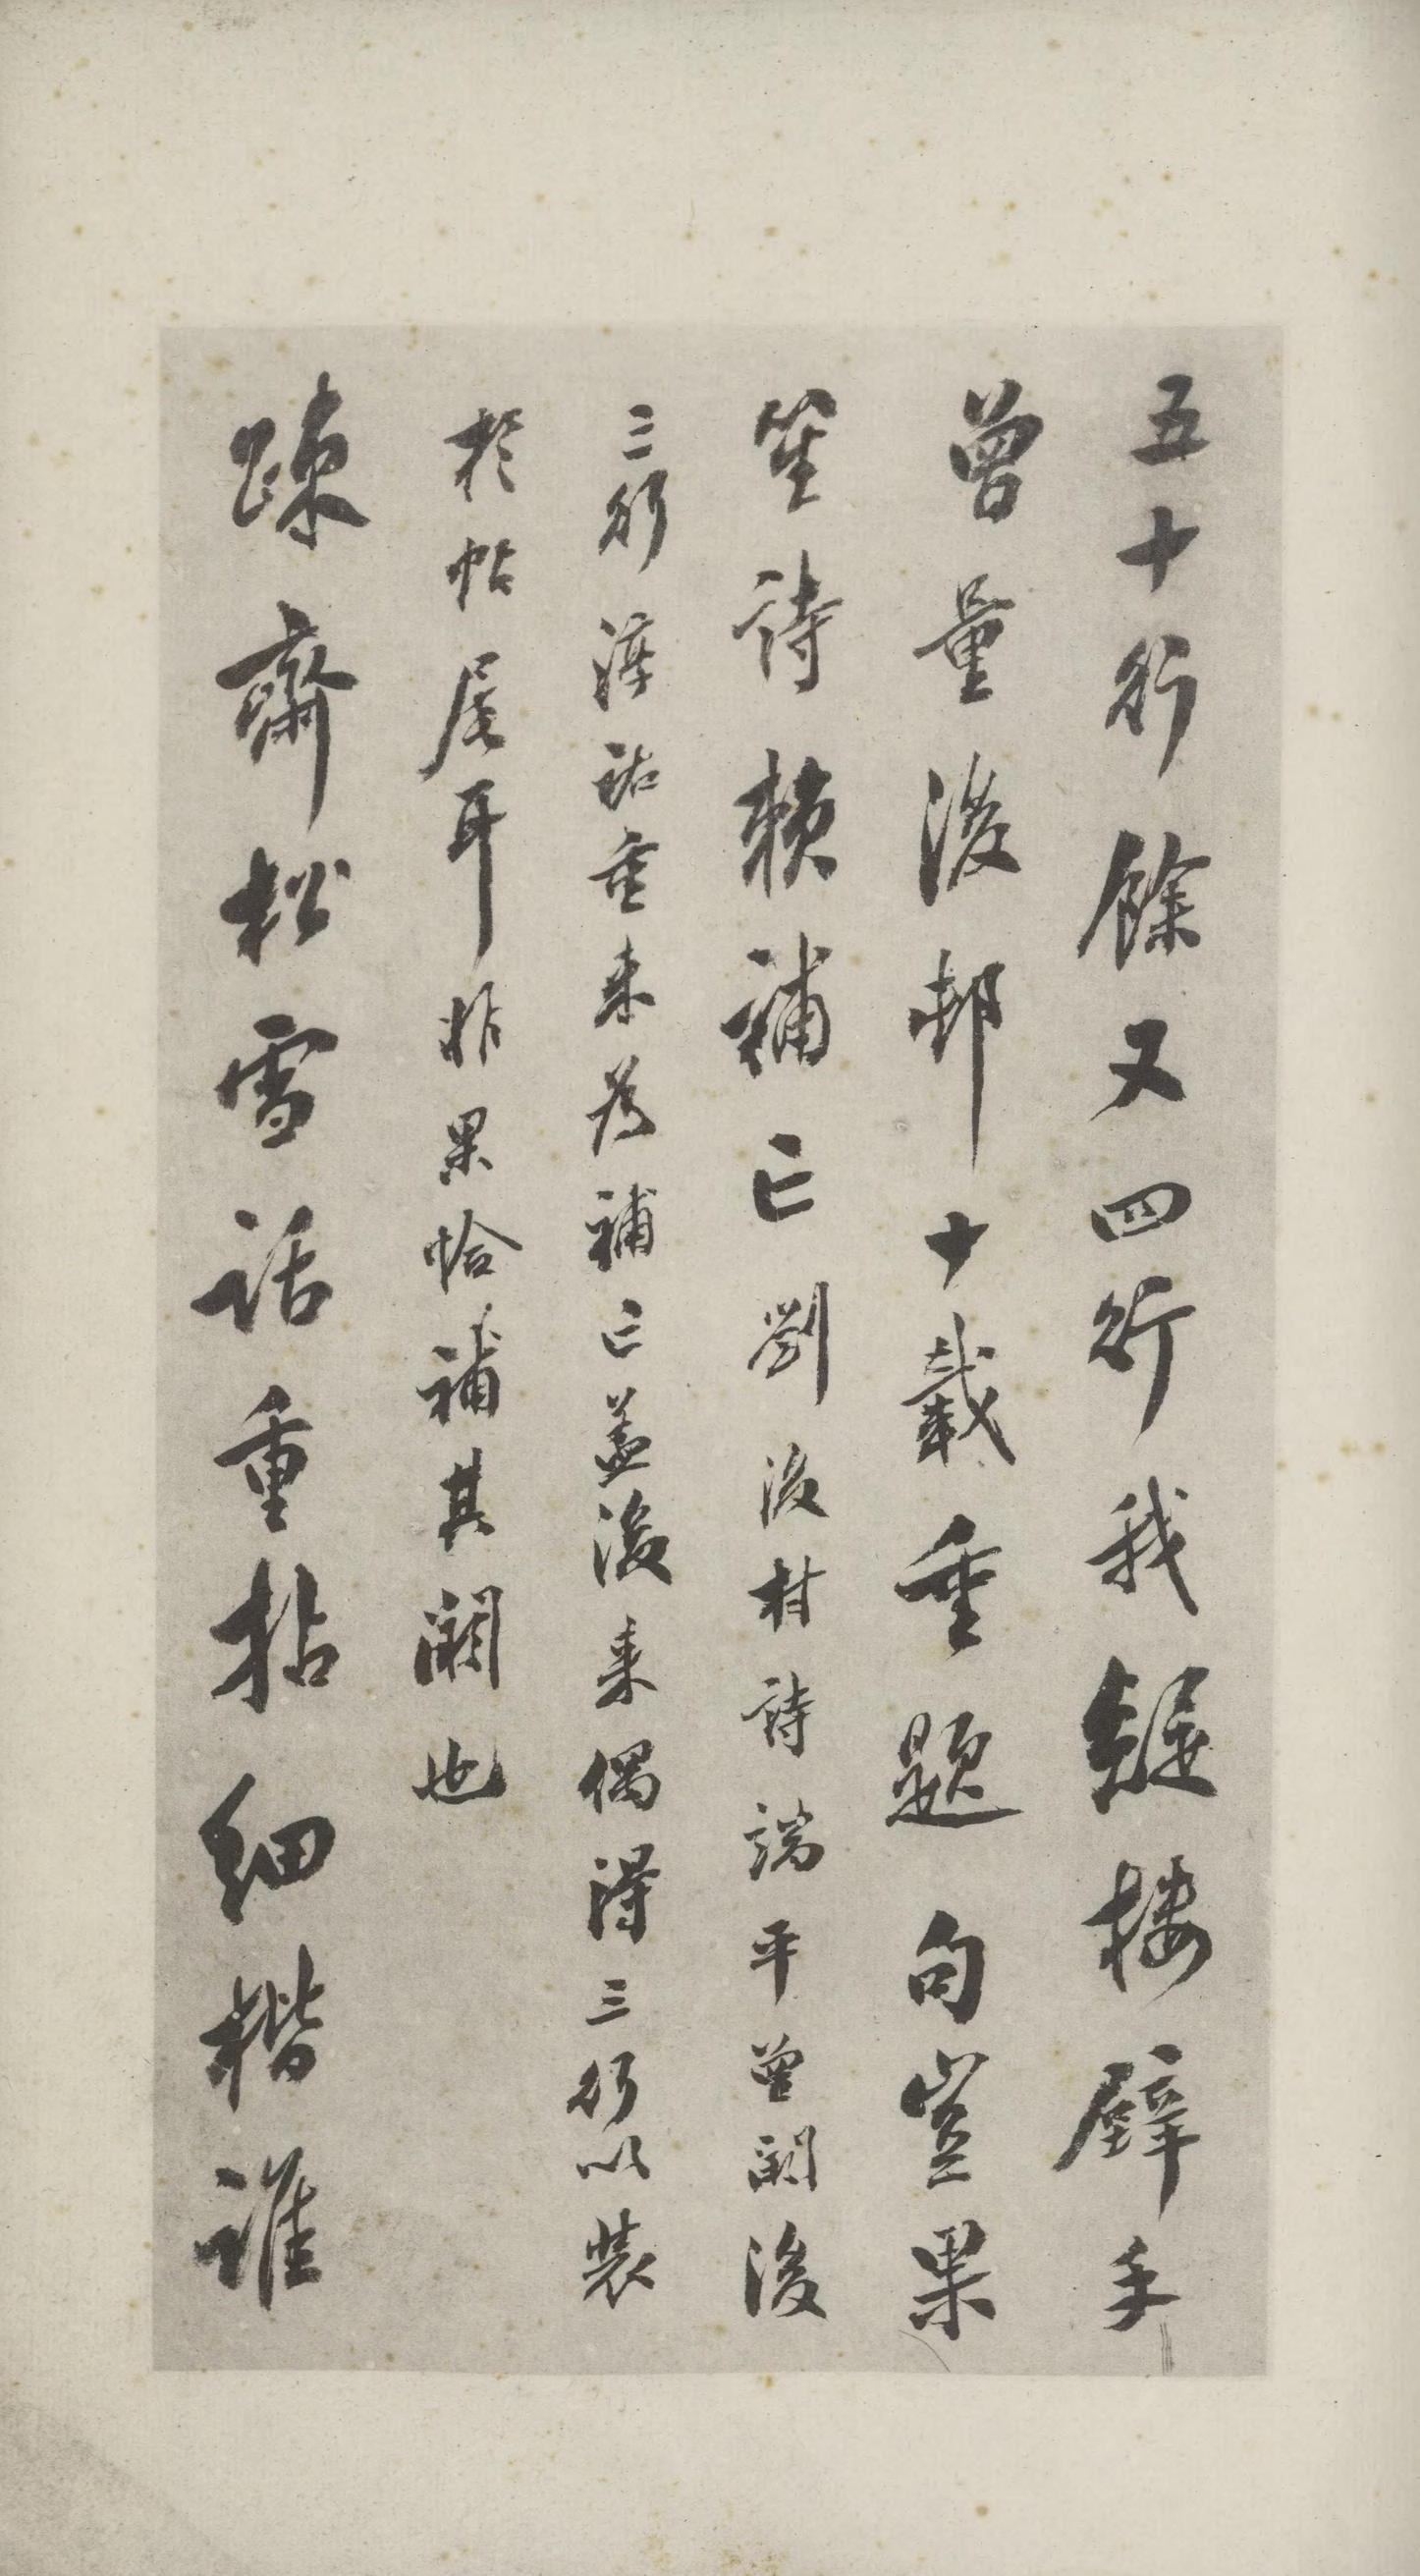 五十行餘又四行我疑樓壁手
曾量後邨十載重題句豈果
笙詩賴補亡劉後村詩端平曾闕後
三行淳祐重来為補亡蓋後来偶得三行以裝
於帖尾耳非果恰補其闕也
疎齋松雪話重拈細楷誰